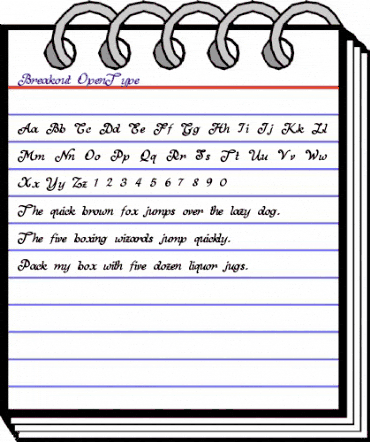 Breakout OpenType
Aa Bb Cc Dd Ee Ff Gg Hh Ii Jj Kk Ll
Mm Nn Oo Pp Qq Rr Ss Tt Uu Vv Ww
Xx Yy Zz 1 2 3 4 5 6 7 8 9 0
The quick brown fox jumps over the lazy dog.
The five boxing wizards jump quickly.
Pack my box with five dozen liquor jugs.